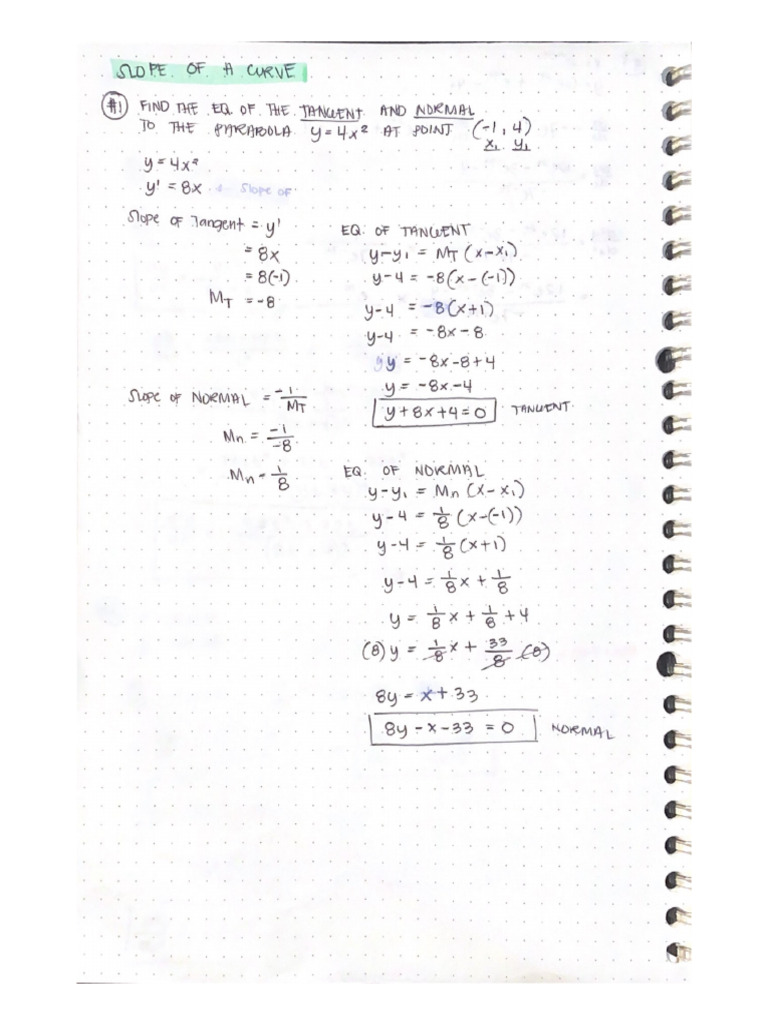 SLOPE OF A CURVE
#1 FIND THE EQ OF THE TANGENT AND NORMAL
TO THE PARABOLA y=4x² AT POINT (-1, 4)
x₁ y₁
y=4x²
y' = 8x Slope of
Slope of Tangent = y'
= 8x
= 8(-1)
M_T = -8
EQ. OF TANGENT
y-y₁ = M_T (x-x₁)
y-4 = -8(x-(-1))
y-4 = -8(x+1)
y-4 = -8x-8
y = -8x-8+4
y = -8x-4
y+8x+4=0 TANGENT
Slope of NORMAL = -1/M_T
Mn = -1/-8
Mn = 1/8
EQ. OF NORMAL
y-y₁ = Mn (x-x₁)
y-4 = 1/8 (x-(-1))
y-4 = 1/8 (x+1)
y-4 = 1/8 x + 1/8
y = 1/8 x + 1/8 + 4
(8) y = 1/8 x + 33/8 (8)
8y = x+33
8y - x - 33 = 0 NORMAL